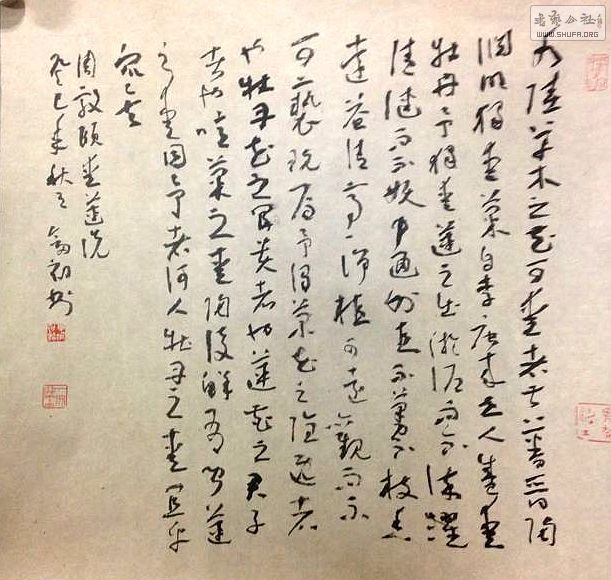 水陆草木之花可爱者甚蕃晋陶
渊明独爱菊自李唐来世人甚爱
牡丹予独爱莲之出淤泥而不染濯
清涟而不妖中通外直不蔓不枝香
远益清亭亭净植可远观而不
可亵玩焉予谓菊花之隐逸者
也牡丹花之富贵者也莲花之君子
者也噫菊之爱陶后鲜有闻莲
之爱同予者何人牡丹之爱宜乎
众矣
周敦颐爱莲说
癸巳年秋月
书艺公社
WWW.SHUFA.ORG